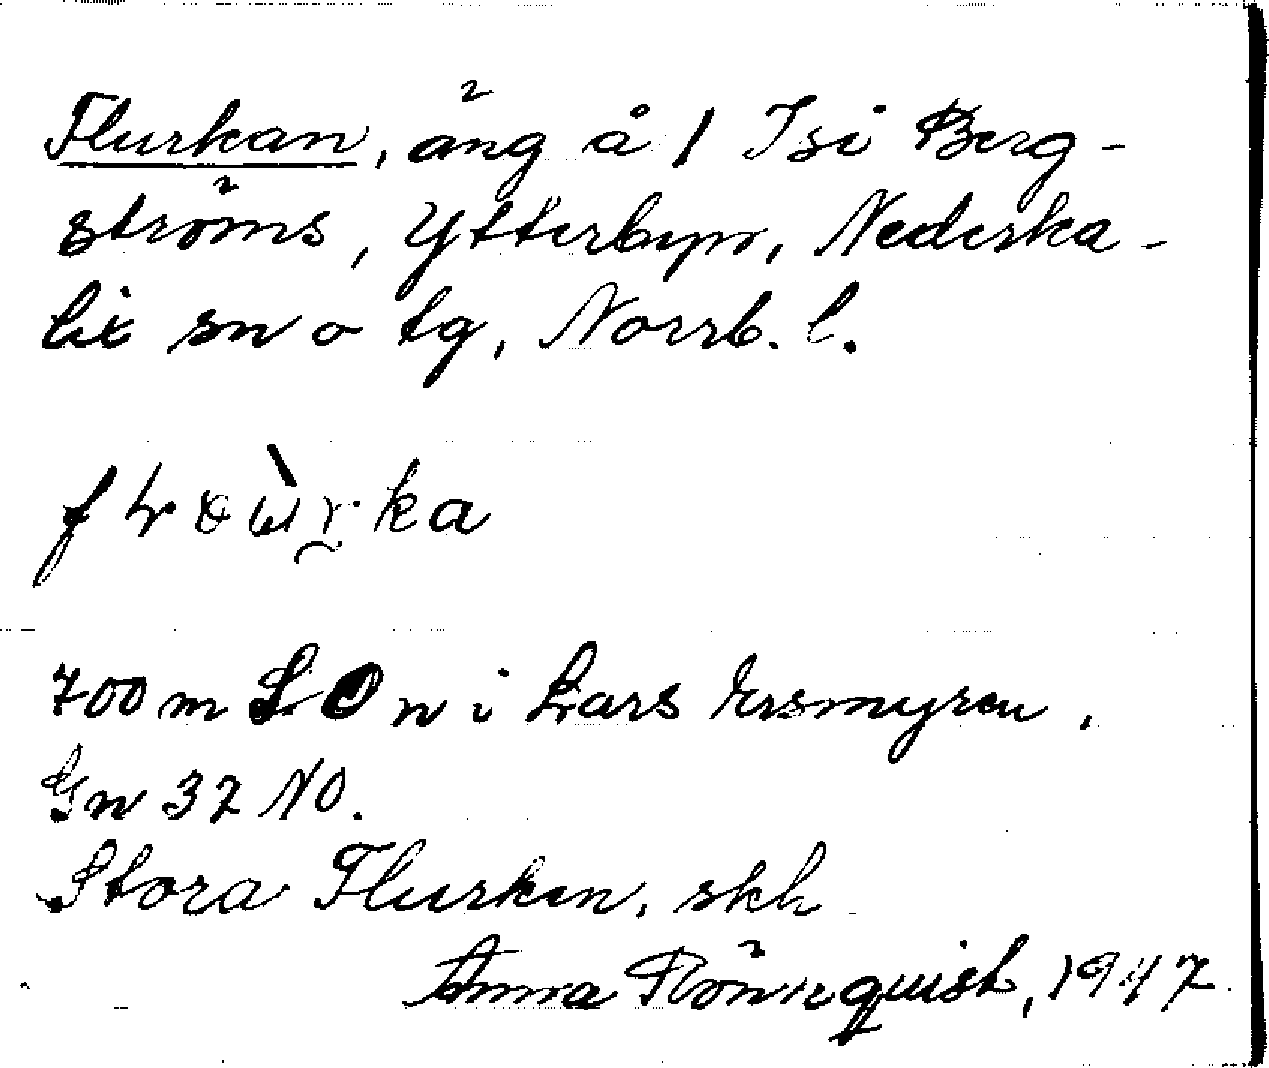 Flurkan, äng å 1 Isi Berg-
ströms, Ytterbyn, Nederka-
lix sn o tg, Norrb. l.
700 m S O n i Lars Ersmyren,
Gn 32 NO.
Stora Flurken, skh
Anna Rönnquist, 1947